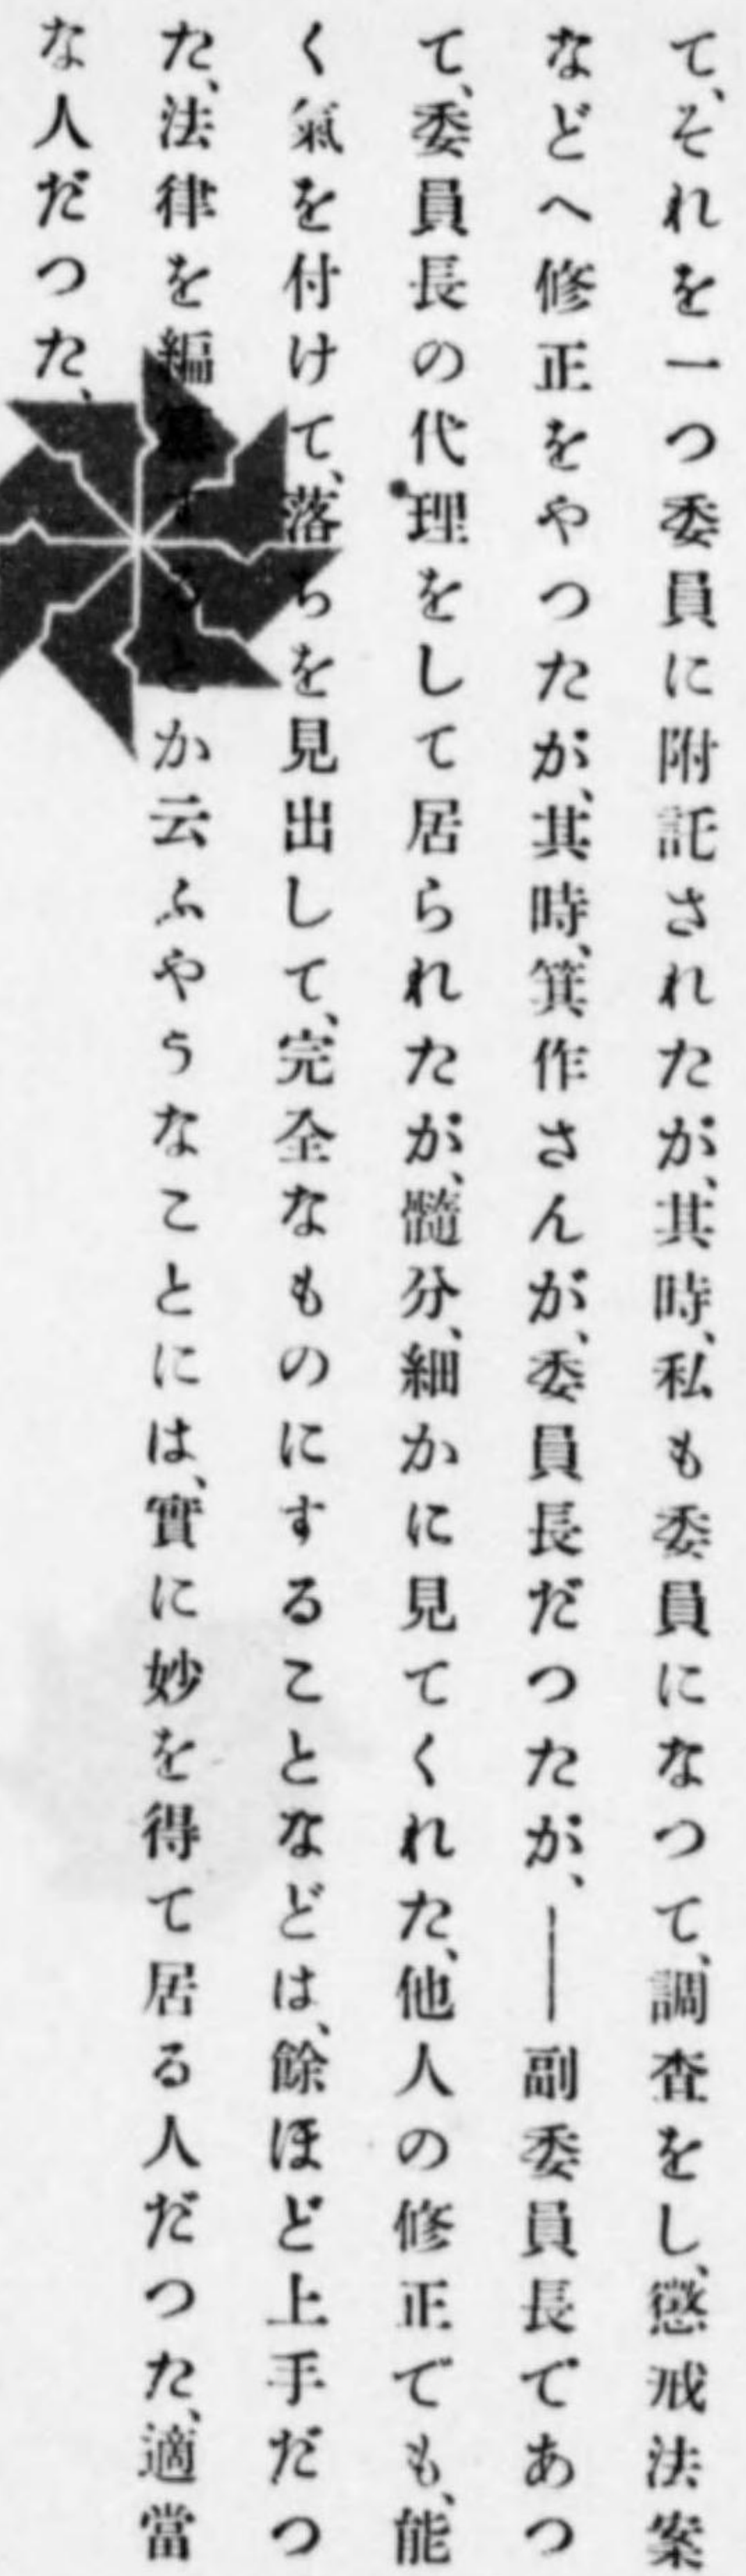 て、それを一つ委員に附託されたが、其時、私も委員になつて、調査をし、懲戒法案
などへ修正をやつたが、其時、箕作さんが、委員長だつたが、――副委員長であつ
て、委員長の代理をして居られたが、髓分、細かに見てくれた、他人の修正でも、能
く氣を付けて、落ちを見出して、完全なものにすることなどは、餘ほど上手だつ
た、法律を編かか云ふやうなことには、實に妙を得て居る人だつた、適當
な人だつた、